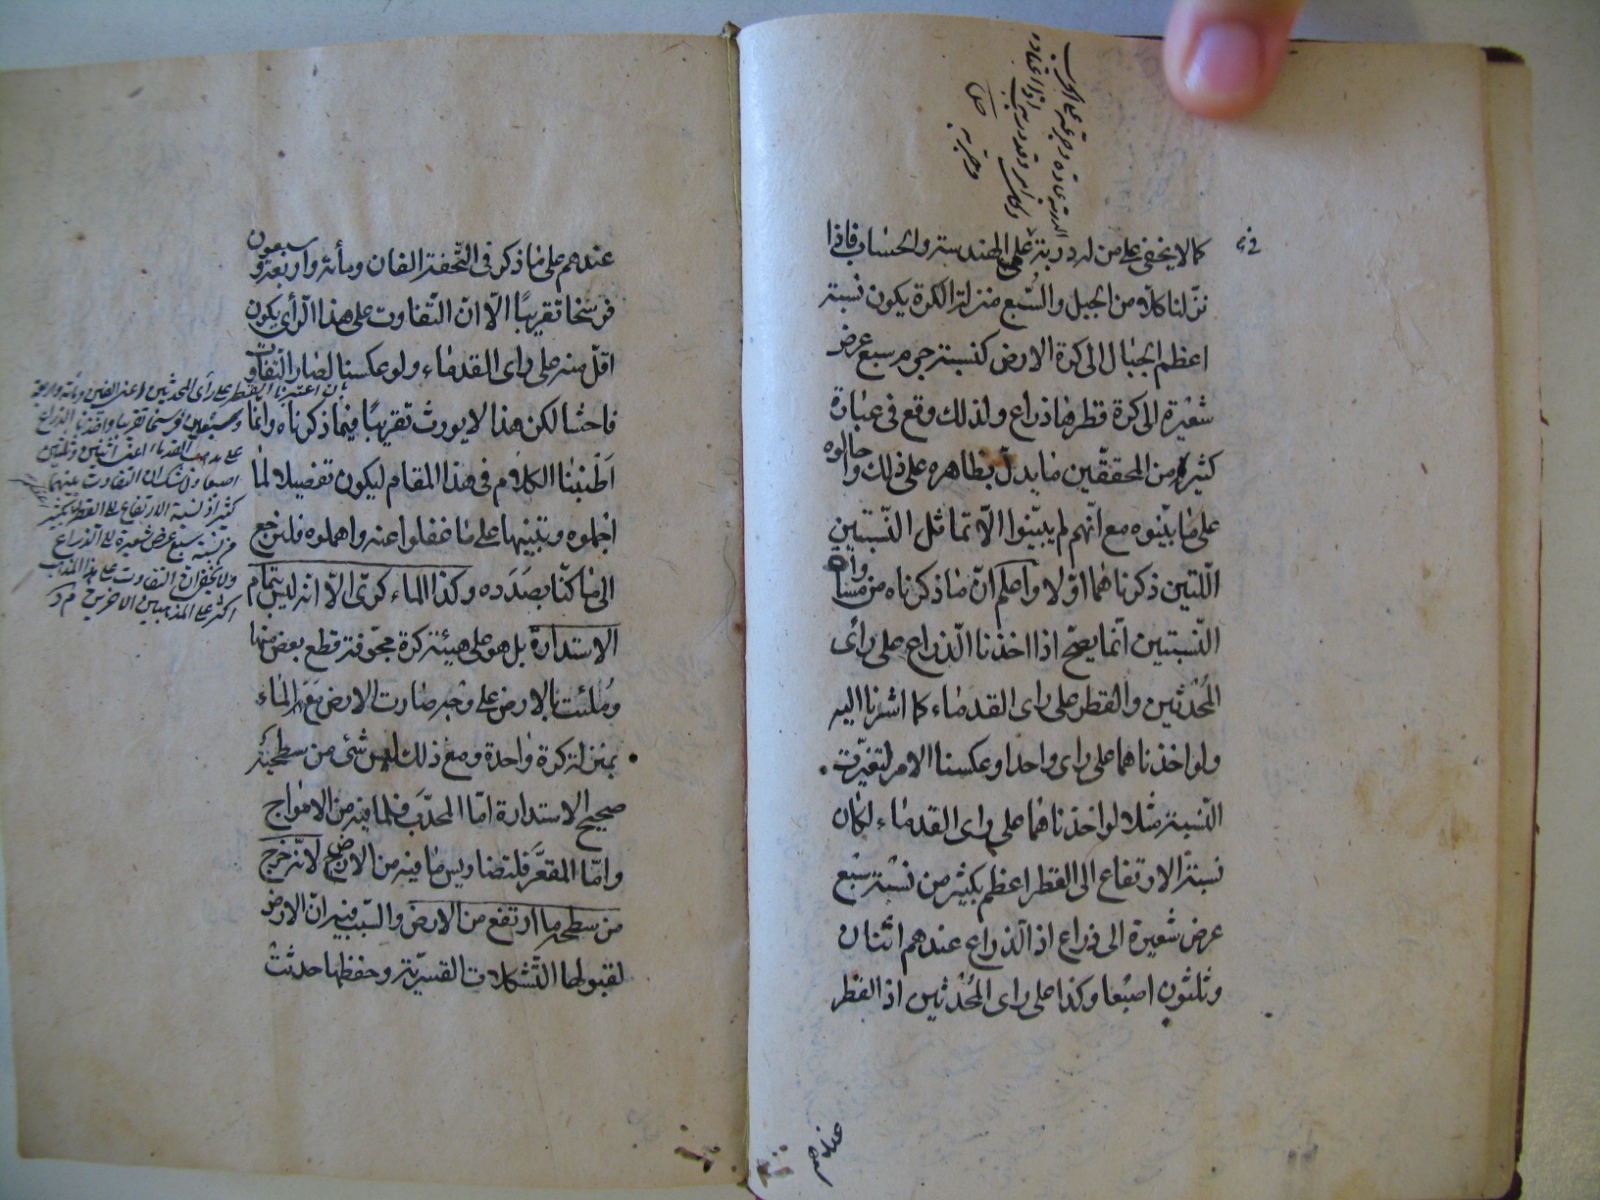 كما لا يخفى على من له دربة على الهندسة والحساب فاذا
نزلنا كلا من الجبل والسبع منزلة الكرة يكون نسبة
اعظم الجبال الى كرة الارض كنسبة جرم سبع عرض
شعيرة الى كرة قطرها ذراع ولذلك وقع في عبارة
كثير من المحققين ما يدل بظاهره على ذلك واحالوه
على ما بينوه مع انهم لم يبينوا الا تماثل النسبتين
اللتين ذكرناهما اولا واعلم ان ما ذكرناه من مساواة
النسبتين انما يصح اذا اخذنا الذراع على رأى
المحدثين والقطر على راى القدماء كما اشرنا اليه
ولو اخذناهما على راى واحد او عكسنا الامر لتغيرت
النسبة مثلا لو اخذناهما على راى القدماء لكان
نسبة الارتفاع الى القطر اعظم بكثير من نسبة سبع
عرض شعيرة الى ذراع اذ الذراع عندهم اثنان
وثلثون اصبعا وكذا على راى المحدثين اذ القطر
عندهم على ما ذكر في التحفة الفان ومأئة واربعة وسبعون
فرسخا تقريبًا الّا انّ التّفاوت على هذا الرأى يكون
اقلّ منه على راى القدماء ولو عكسنا لصار التفاوت
فاحشا لكن هذا لا يورث تقريبًا فيما ذكرناه وانما
اطنبنا الكلام في هذا المقام ليكون تفصيلا لما
اجملوه وتنبيها على ما غفلوا عنه واهملوه فلنرجع
الى ما كنّا بصدده وكذا الماء كرىّ الّا انه ليس بتمام
الاستدارة بل هو على هيئة كرة مجوّفة قطع بعض منها
وملئت بالارض على وجه صارت الارض مع الماء
بمنزلة كرة واحدة ومع ذلك ليس شئ من سطحيه
صحيح الاستدارة امّا المحدّب فلما فيه من الامواج
وامّا المقعّر فلتضاريس ما فيه من الارض لانّه خرج
من سطحه ما ارتفع من الارض والسّبب فيه انّ الارض
لقبولها التّشكلات القسريّة وحفظها حدثت
بان اعتبرنا القطر على رأى المحدثين اعنى الفين ومأئة واربعة
وسبعين فرسخا تقريبا واخذنا الذراع
على مذهب القدماء اعنى اثنين وثلثين
اصبعا ولا شك ان التفاوت عنهما
كثير اذ نسبة الارتفاع الى القطر بكثير
من نسبة سبع عرض شعيرة الى الذراع
ولا يخفى ان التفاوت على هذا المذهب
اكثر على المذهبين الاخرين